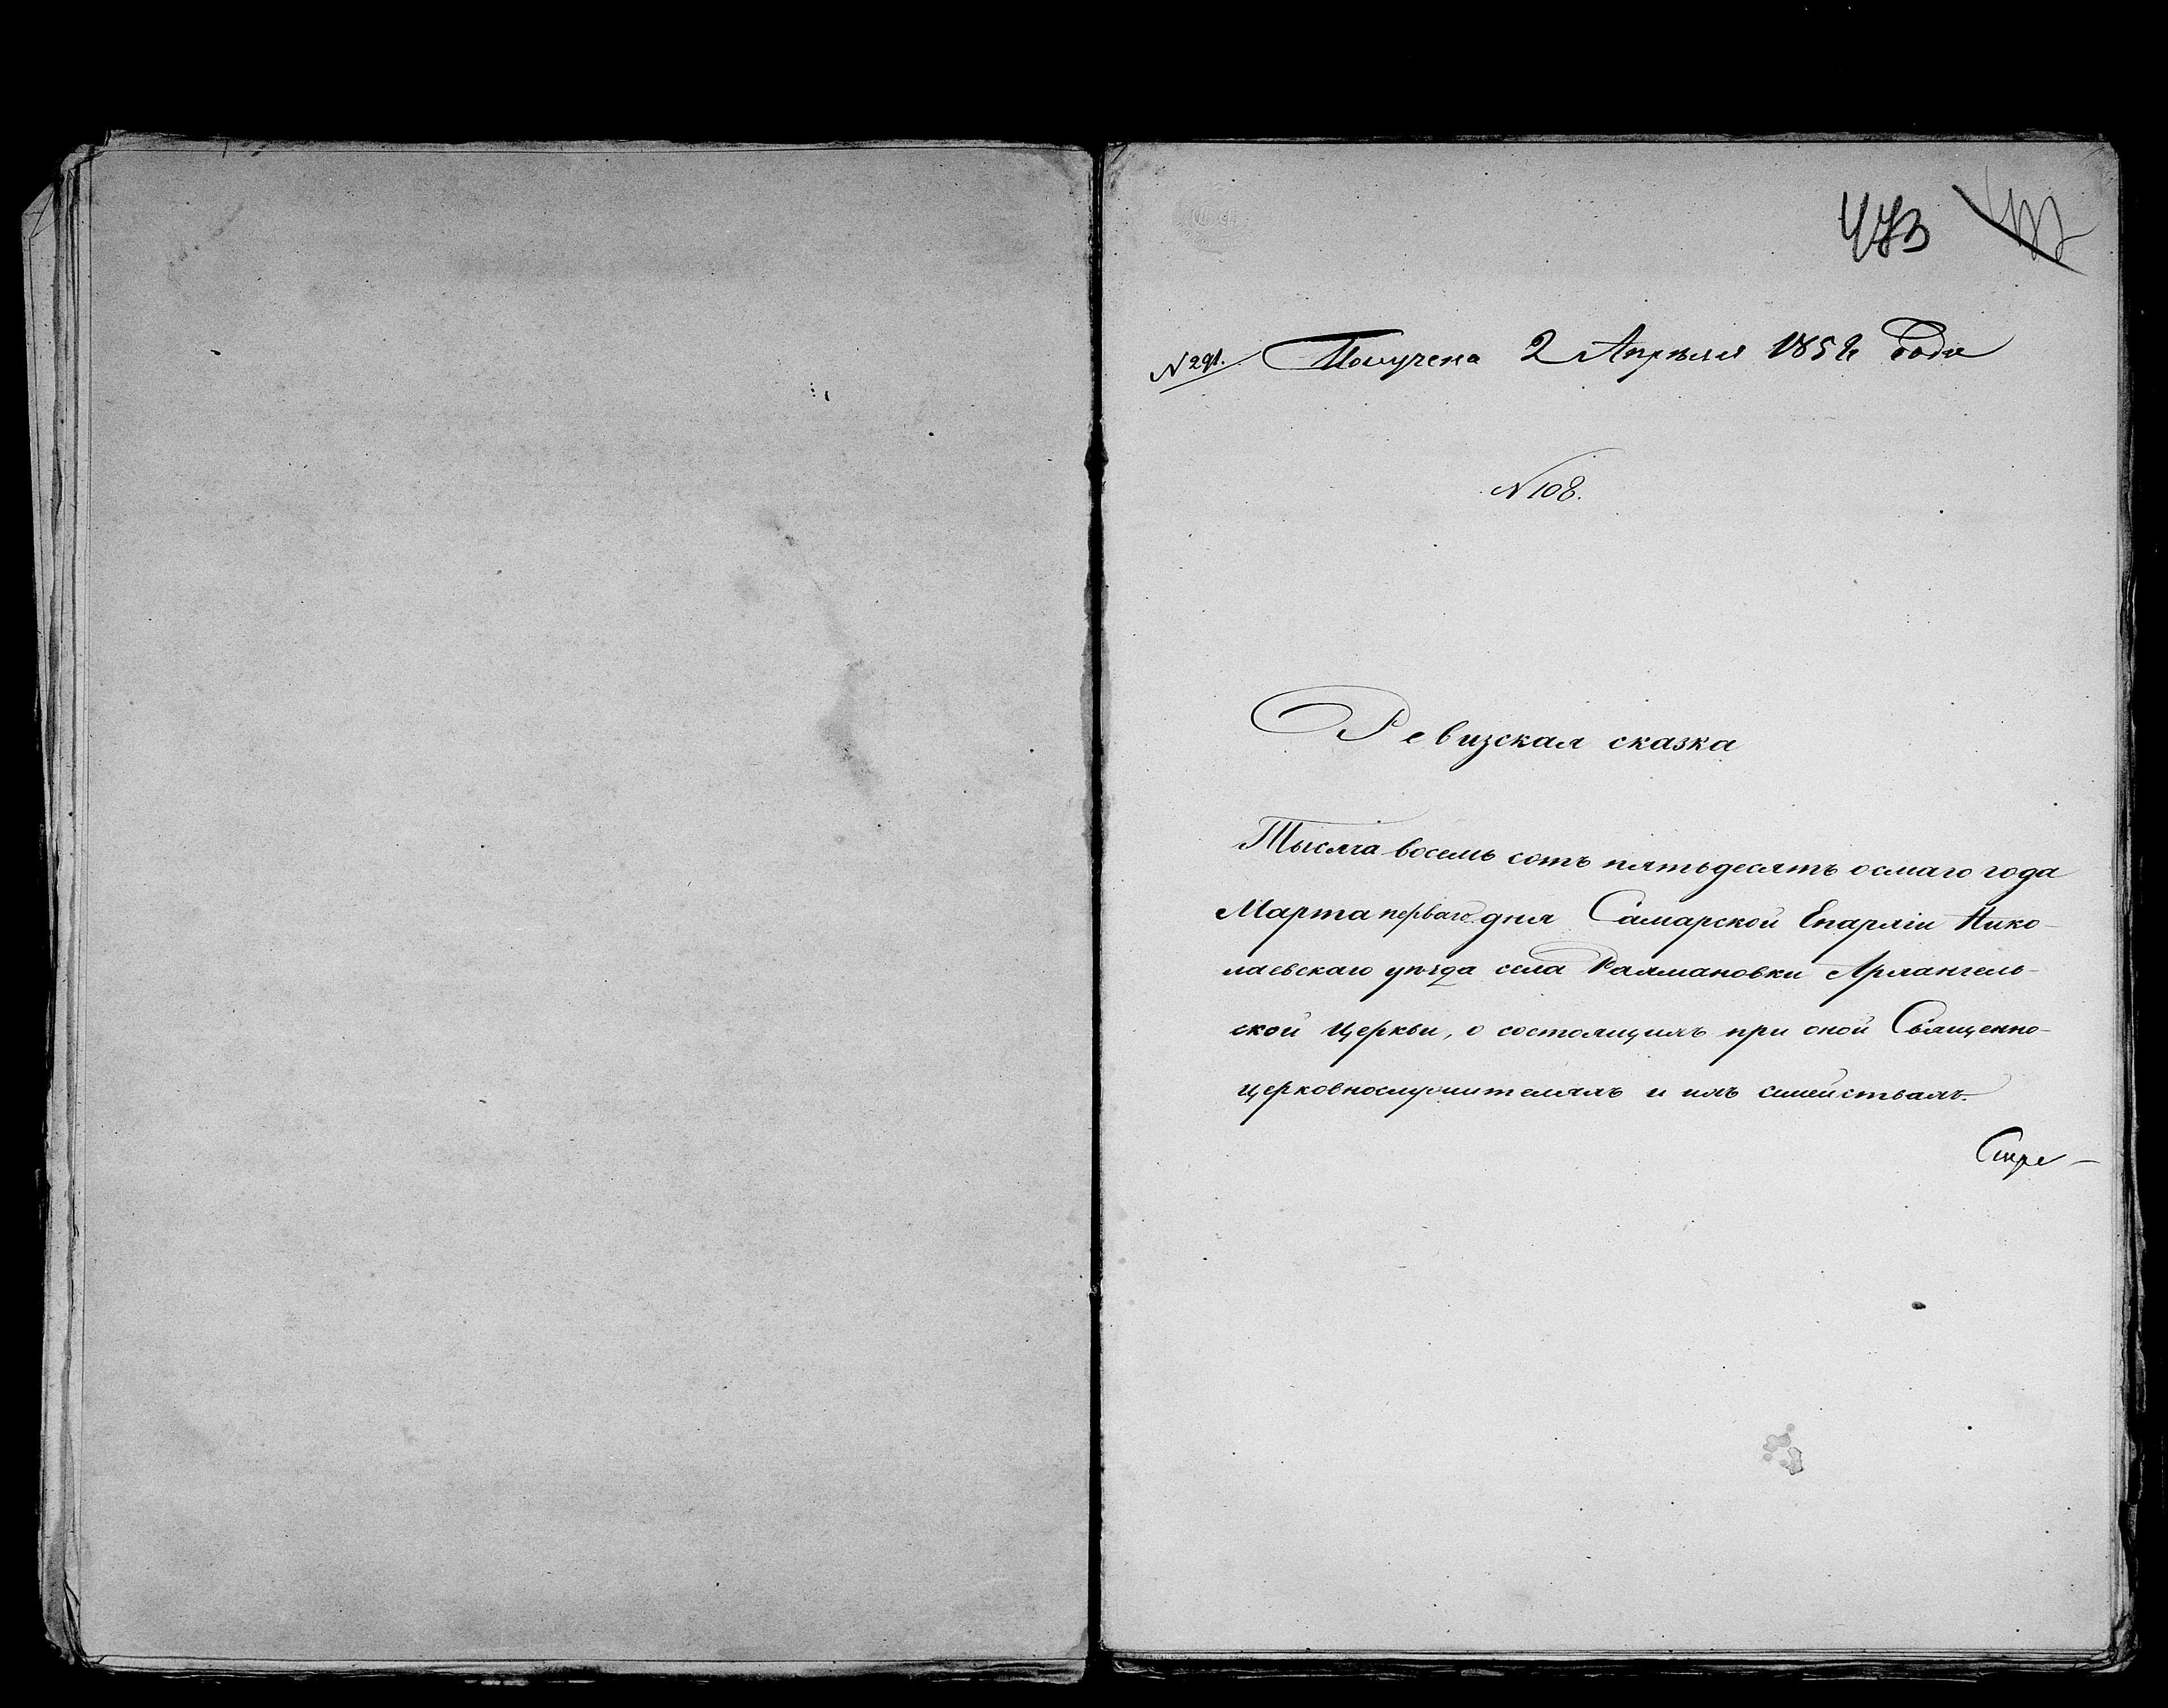 473
N 291. Получена 2 Апрѣля 1858 года
N 108.
Ревизская сказка
Тысяча восемь сотъ пятьдесятъ осмаго года
Марта перваго дня Самарской Епархіи Нико-
лаевскаго уѣзда села Рахмановки Архангель-
ской церкви, о состоящихъ при оной Священно-
церковнослужителяхъ и ихъ семействахъ.